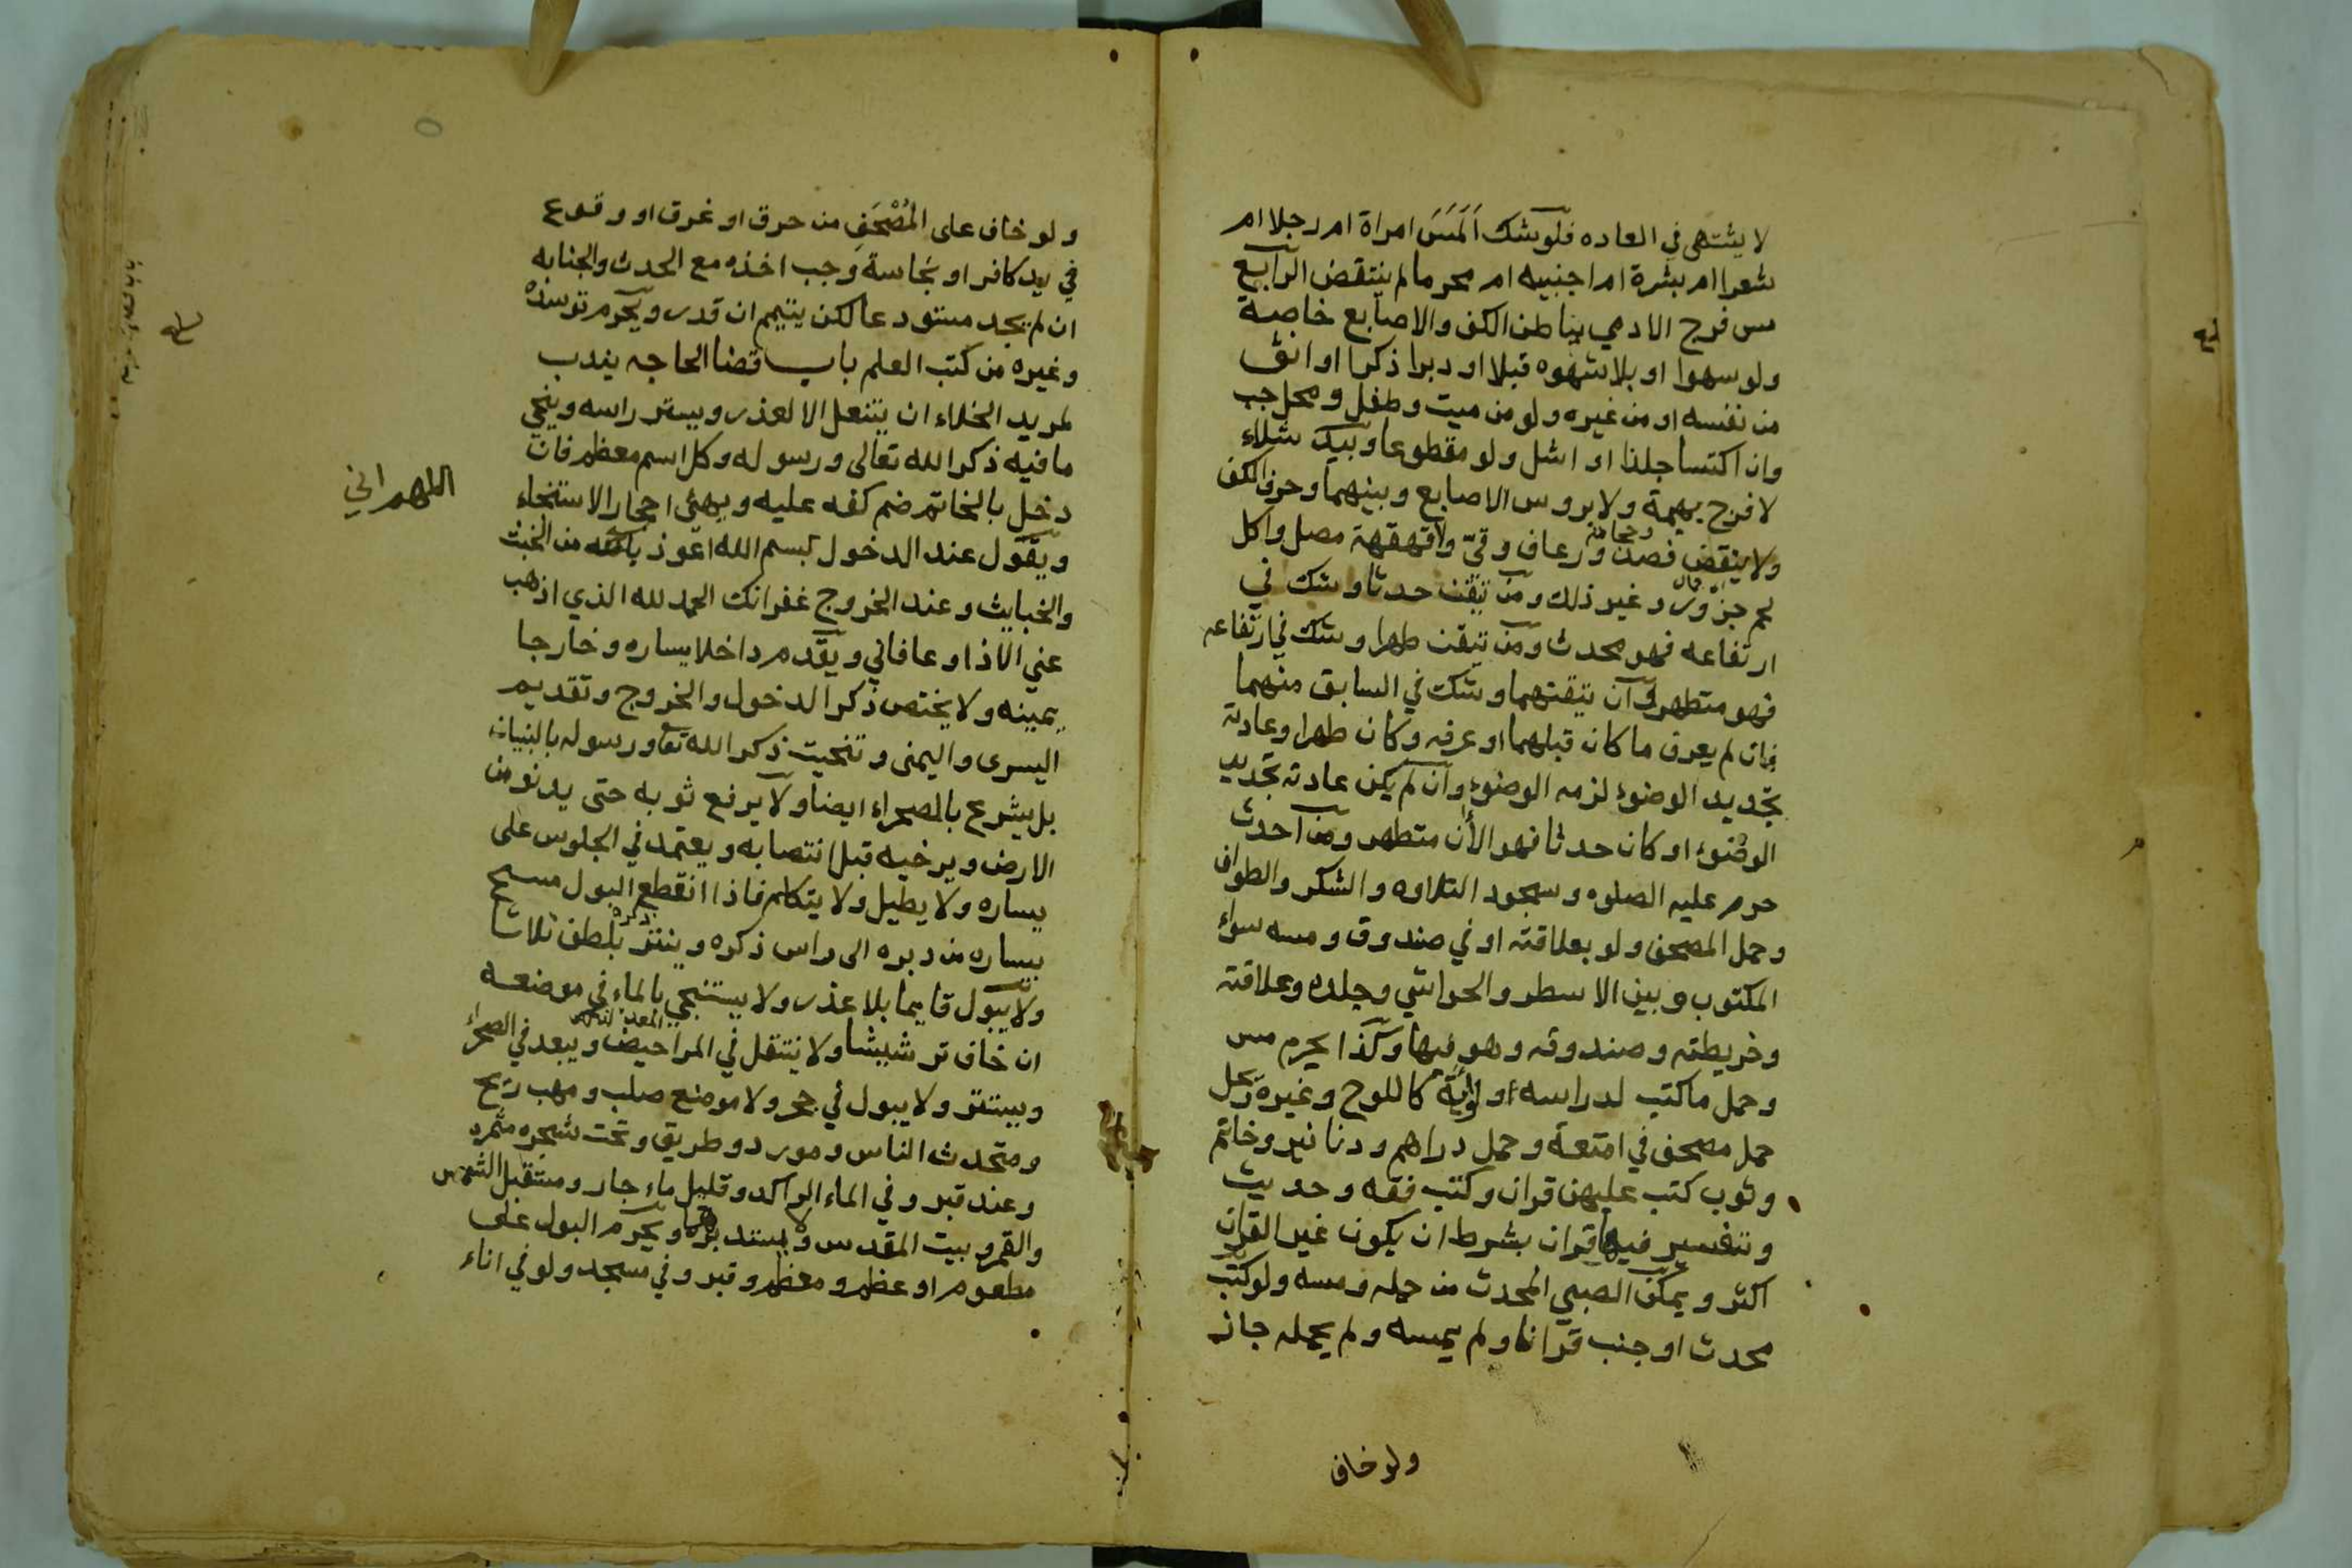 لا يشتهى في العاده فلو شك المَسَ امراة ام رجلا ام
شعرا ام بشرة ام اجنبيه ام محرما لم ينتقض الرابع
مس فرج الادمي بباطن الكف والاصابع خاصة
ولو سهوا او بلا شهوه قبلا او دبرا ذكرا او انثى
من نفسه او من غيره ولو من ميت وطفل ومحل جب
وان اكتسا جلدا او اشل ولو مقطوعا وبيد شلاء
لا فرج بهيمة ولا بروس الاصابع وبينهما وحرف الكف
ولا ينقض فصد وحجامة ورعاف وقيّ ولا قهقهة مصل واكل
لحم جزور وغير ذلك ومن تيقن حدثا وشك في
ارتفاعه فهو محدث ومن تيقن طهرا وشك في ارتفاعه
فهو متطهر وان تيقنهما وشك في السابق منهما
فان لم يعرف ما كان قبلهما او عرفه وكان طهرا وعادته
تجديد الوضوء لزمه الوضوء وان لم يكن عادته تجديد
الوضوء او كان حدثا فهو الأن متطهر ومن احدث
حرم عليه الصلوه وسجود التلاوه والشكر والطواف
وحمل المصحف ولو بعلاقته او في صندوق ومسه سواء
المكتوب وبين الاسطر والحواشي وجلده وعلاقته
وخريطته وصندوقه وهو فيها وكذا يحرم مس
وحمل ما كتب لدراسه او لوآية كاللوح وغيره ويحل
حمل مصحف في امتعة وحمل دراهم ودنانير وخاتم
وثوب كتب عليهن قران وكتب فقه وحديث
وتفسير فيها قران بشرط ان يكون غير القران
اكثر ويمكن الصبي المحدث من حمله ومسه ولو كتب
محدث او جنب قرانا ولم يمسه ولم يحمله جاز
ولو خاف
ولو خاف على المُصْحَفِ من حرق او غرق او وقوع
في يد كافر او نجاسة وجب اخذه مع الحدث والجنابه
ان لم يجد مستودعا لكن يتيمم ان قدر ويحرم توسده
وغيره من كتب العلم باب قضا الحاجه يندب
لمريد الخلاء ان ينتعل الا لعذر ويستر راسه وينحي
ما فيه ذكر الله تعالى ورسوله وكل اسم معظم فان
دخل بالخاتم ضم كفه عليه ويهيئ احجار الاستنجاء
ويقول عند الدخول بسم الله اعوذ بالله من الخبث
اللهم اني
والخبايث وعند الخروج غفرانك الحمد لله الذي اذهب
عني الاذا وعافاني ويقدم داخلا يساره وخارجا
يمينه ولا يختص ذكر الدخول والخروج وتقديم
اليسرى واليمنى وتنحيت ذكر الله تعا ورسوله بالبنيان
بل يشرع بالصحراء ايضا ولا يرفع ثوبه حتى يدنو من
الارض ويرخيه قبل انتصابه ويعتمد في الجلوس على
يساره ولا يطيل ولا يتكلم فاذا انقطع البول مسح
بيساره من دبره الى راس ذكره وينتر ذكره بلطف ثلاثا
ولا يبول قايما بلا عذر ولا يستنجي بالماء في موضعه
ان خاف ترشيشا ولا ينتقل في المراحيض ويبعد في الصحراء
ويستتر ولا يبول في جحر ولا موضع صلب ومهب ريح
ومتحدث الناس ومورد وطريق وتحت شجره مثمره
وعند قبر وفي الماء الراكد وقليل ماء جار ومستقبل الشمس
والقمر وبيت المقدس ولا يستدبرها ويحرم البول على
مطعوم او عظم ومعظم وقبر وفي مسجد ولو في اناء